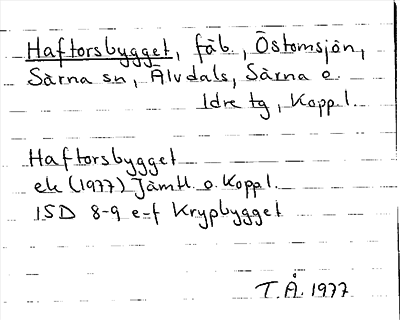 Haftorsbygget, fäb., Östomsjön,
Särna sn, Älvdals, Särna o.
Idre tg, Koppl.
Haftorsbygget
ek (1977) Jämtl. o. Koppl.
15D 8-9 e-f Krypbygget
T.Å. 1977